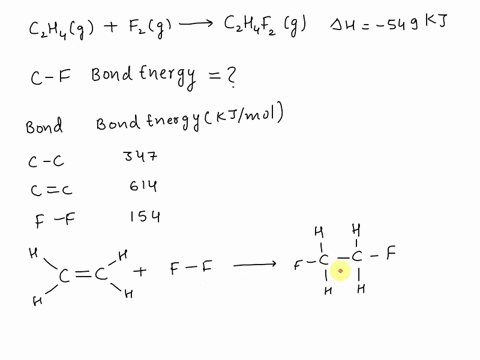 C₂H₄(g) + F₂(g) ⟶ C₂H₄F₂(g) ΔH = -549 KJ
C-F Bond Energy = ?
Bond Bond Energy (KJ/mol)
C-C 347
C=C 614
F-F 154
H H H H
C=C + F-F ⟶ F-C-C-F
H H H H